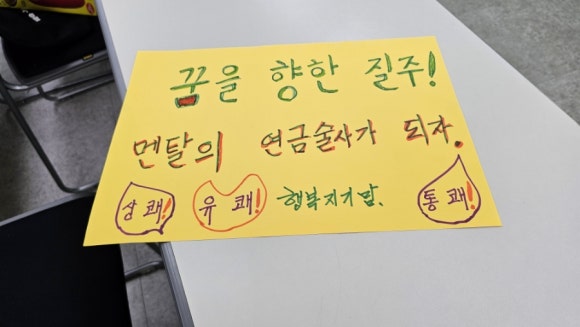 꿈을 향한 질주!
멘탈의 연금술사가 되자.
상쾌! 유쾌! 행복지기맘. 통쾌!